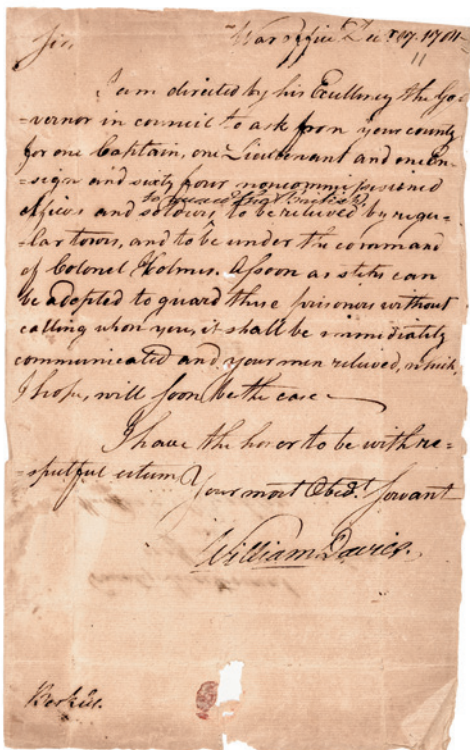 Sir War Office Decr 17. 1781
I am directed by his Excellency the Go
=vernor in council to ask from your county
for one Captain, one Lieutenant and one En
=sign and sixty four noncommissioned
to guard the British
officers and soldiers, to be relieved by regu-
=lar tours, and to be under the command
of Colonel Holmes. As soon as steps can
be adopted to guard these prisoners without
calling upon you, it shall be immediately
communicated and your men relieved, which,
I hope, will soon be the case
I have the honor to be with re=
=spectful esteem
Your most Obedt. Servant
William Davies.